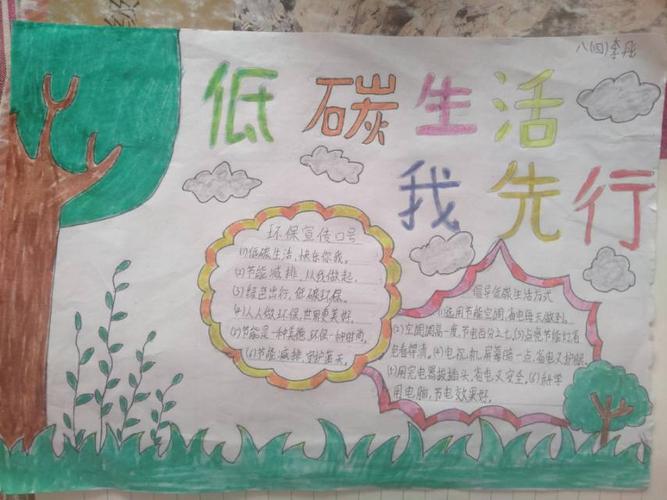 八(四)李彤
低碳生活
我先行
环保宣传口号
(1)低碳生活,快乐你我。
(2)节能减排,从我做起。
(3)绿色出行,低碳环保。
(4)人人做环保,世界更美好。
(5)节能是一种美德,环保一种时尚。
(6)节能减排,守护蓝天。
倡导低碳生活方式
(1)选用节能空调,省电每天做到。
(2)空调调高一度,节电百分之七。(3)点亮节能灯省
电看得清。(4)电视机屏幕暗一点,省电又护眼。
(5)用完电器拔插头,省电又安全。(6)科学
用电脑,节电效果好。